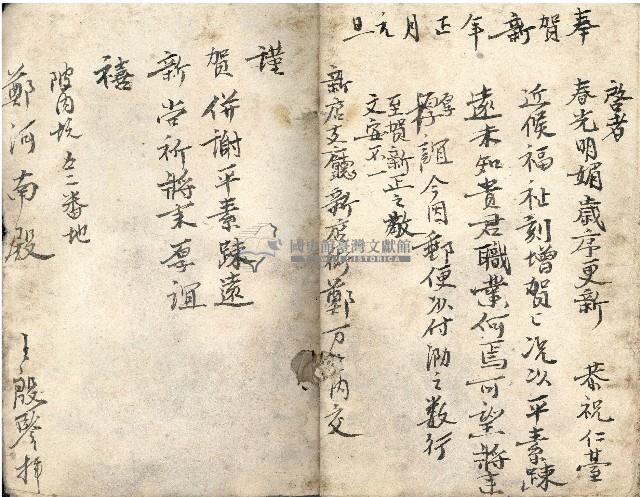 奉賀新年正月元旦
啓者
春光明媚歲序更新 恭祝仁臺
近候福祉刻增賀々況以平素踈
遠未知貴君職業何焉可望將來
厚誼今因郵便以付泐之數行
至賀新正之敬
文安不一
新店支廳新店街鄭万 內交
謹
賀併謝平素踈遠
新尚祈將來厚誼
禧
陂內坑 番地
鄭河南殿
殿 拜
國史館臺灣文獻館
TAIWAN HISTORICA